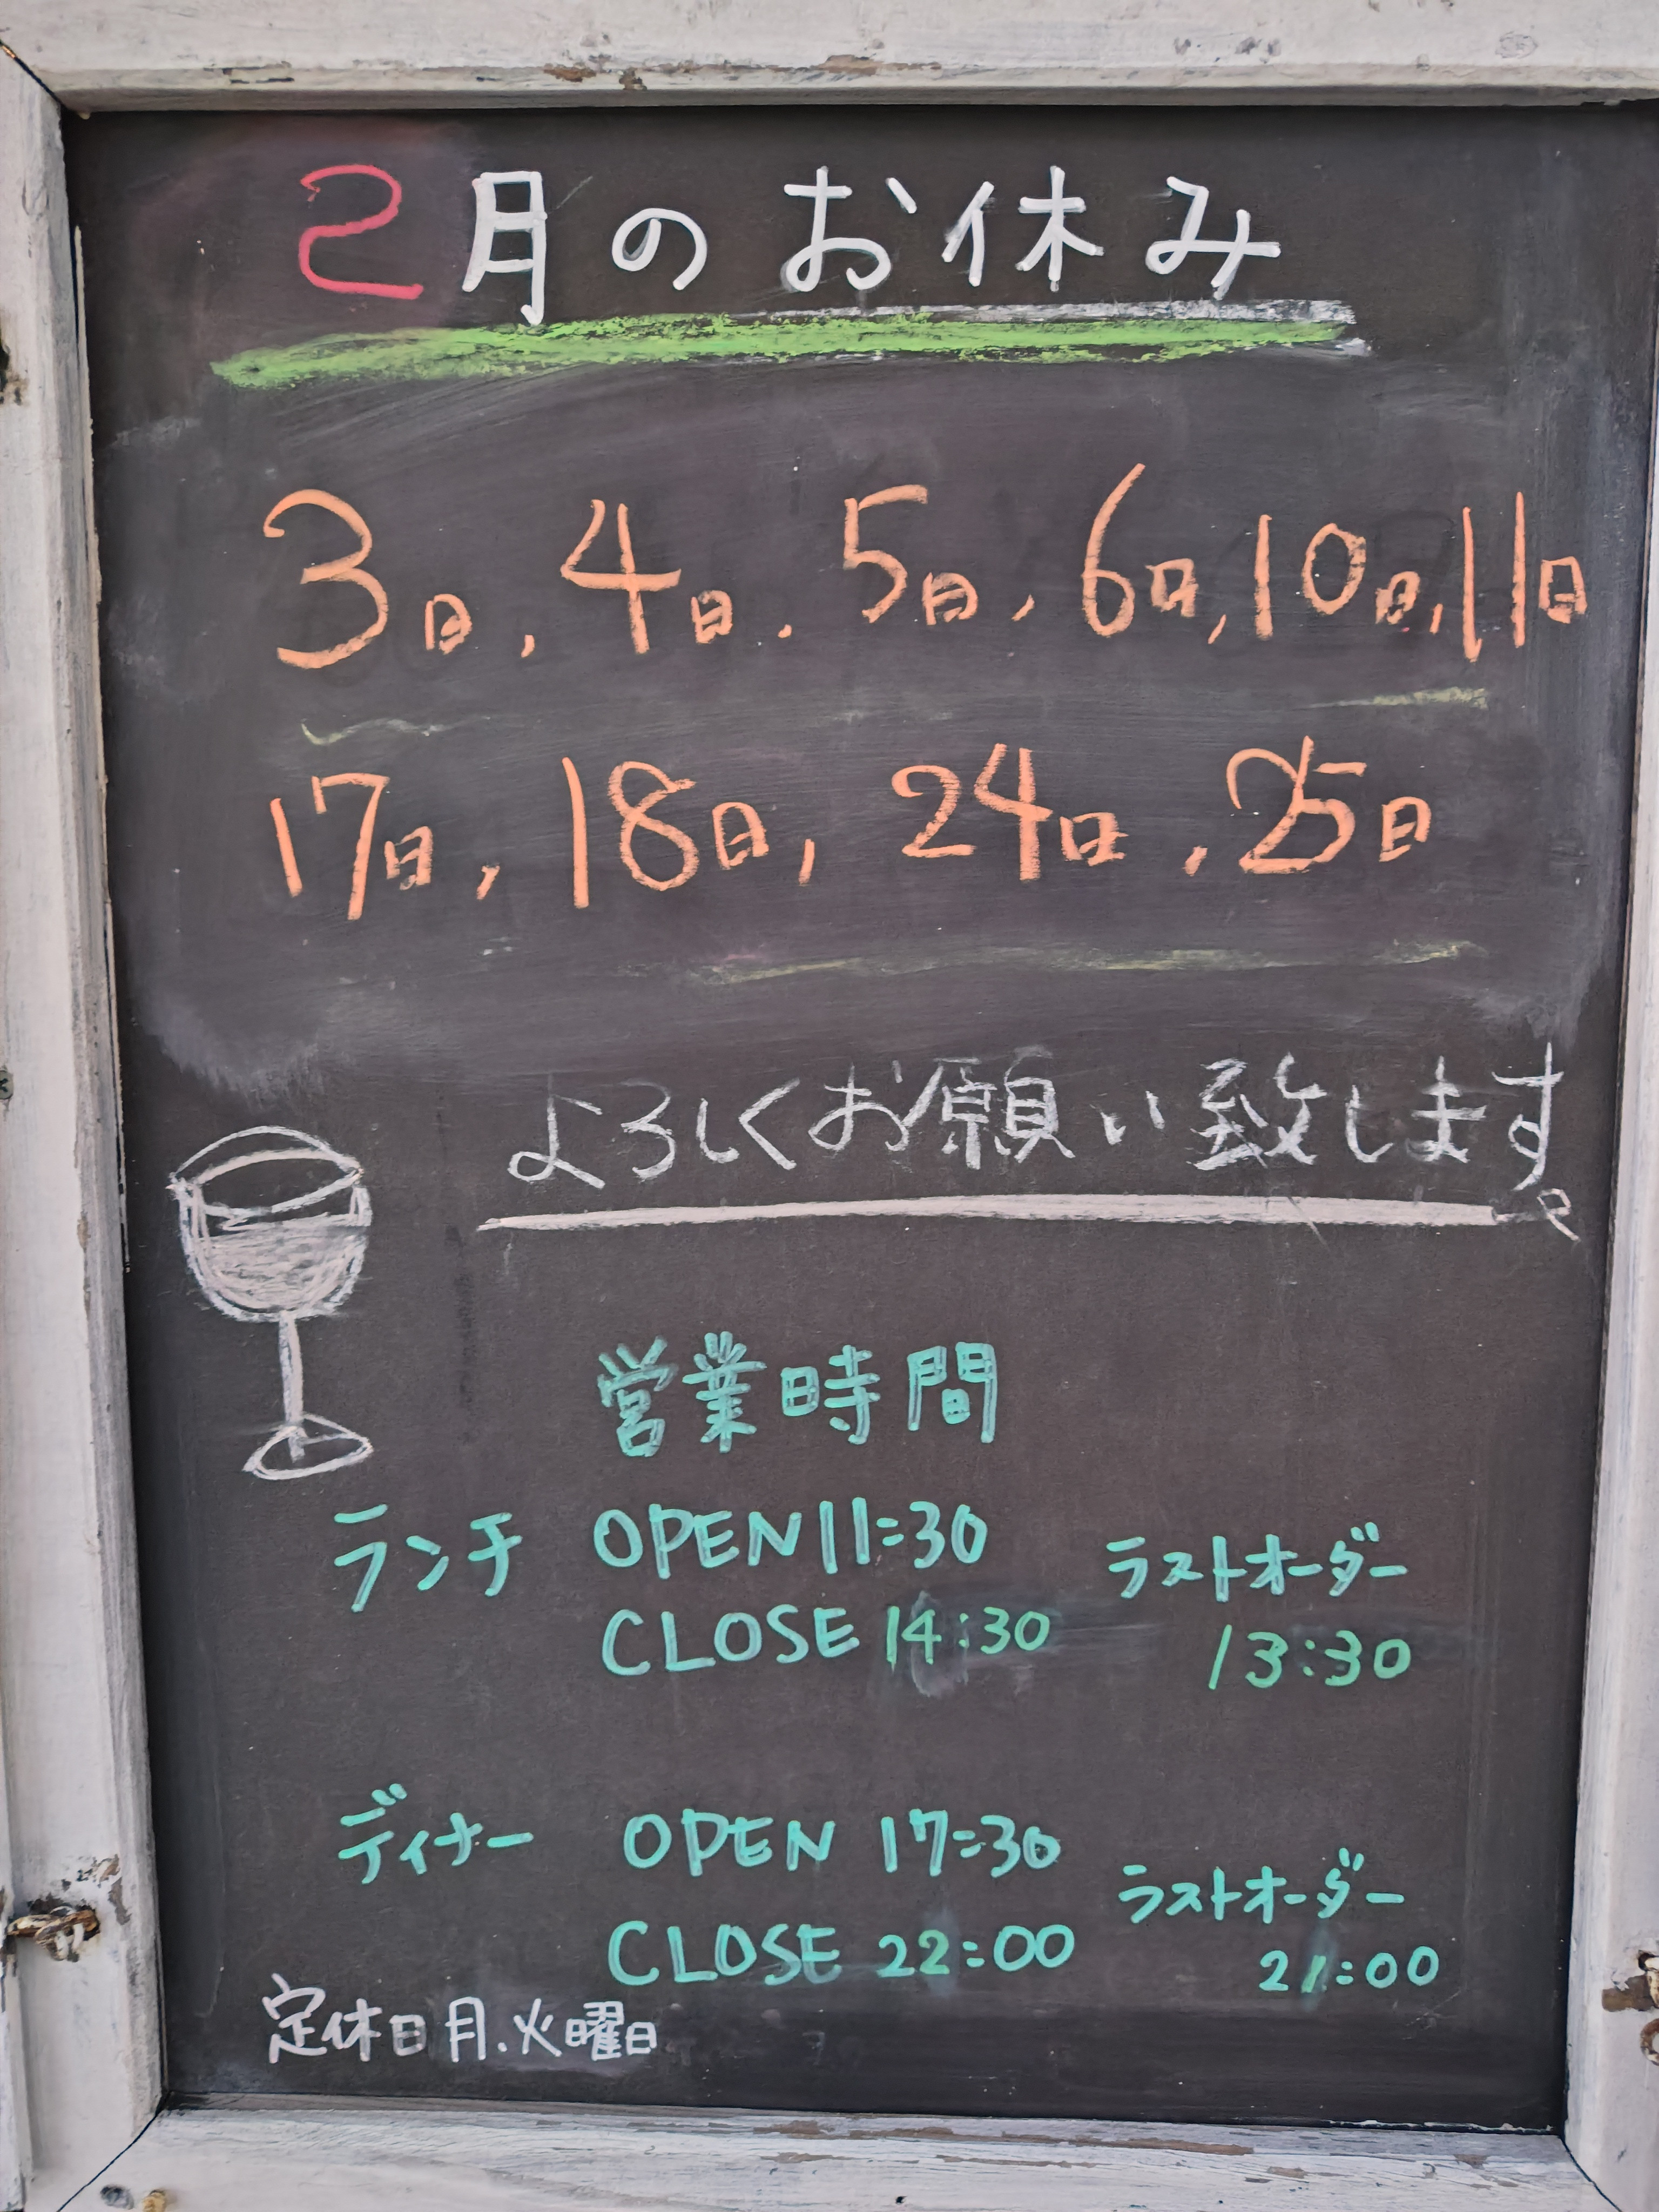 2月のお休み
3日, 4日. 5日, 6日, 10日, 11日
17日, 18日, 24日, 25日
よろしくお願い致します。
営業時間
ランチ OPEN 11:30
CLOSE 14:30
ラストオーダー
13:30
ディナー OPEN 17:30
CLOSE 22:00
ラストオーダー
21:00
定休日 月.火曜日